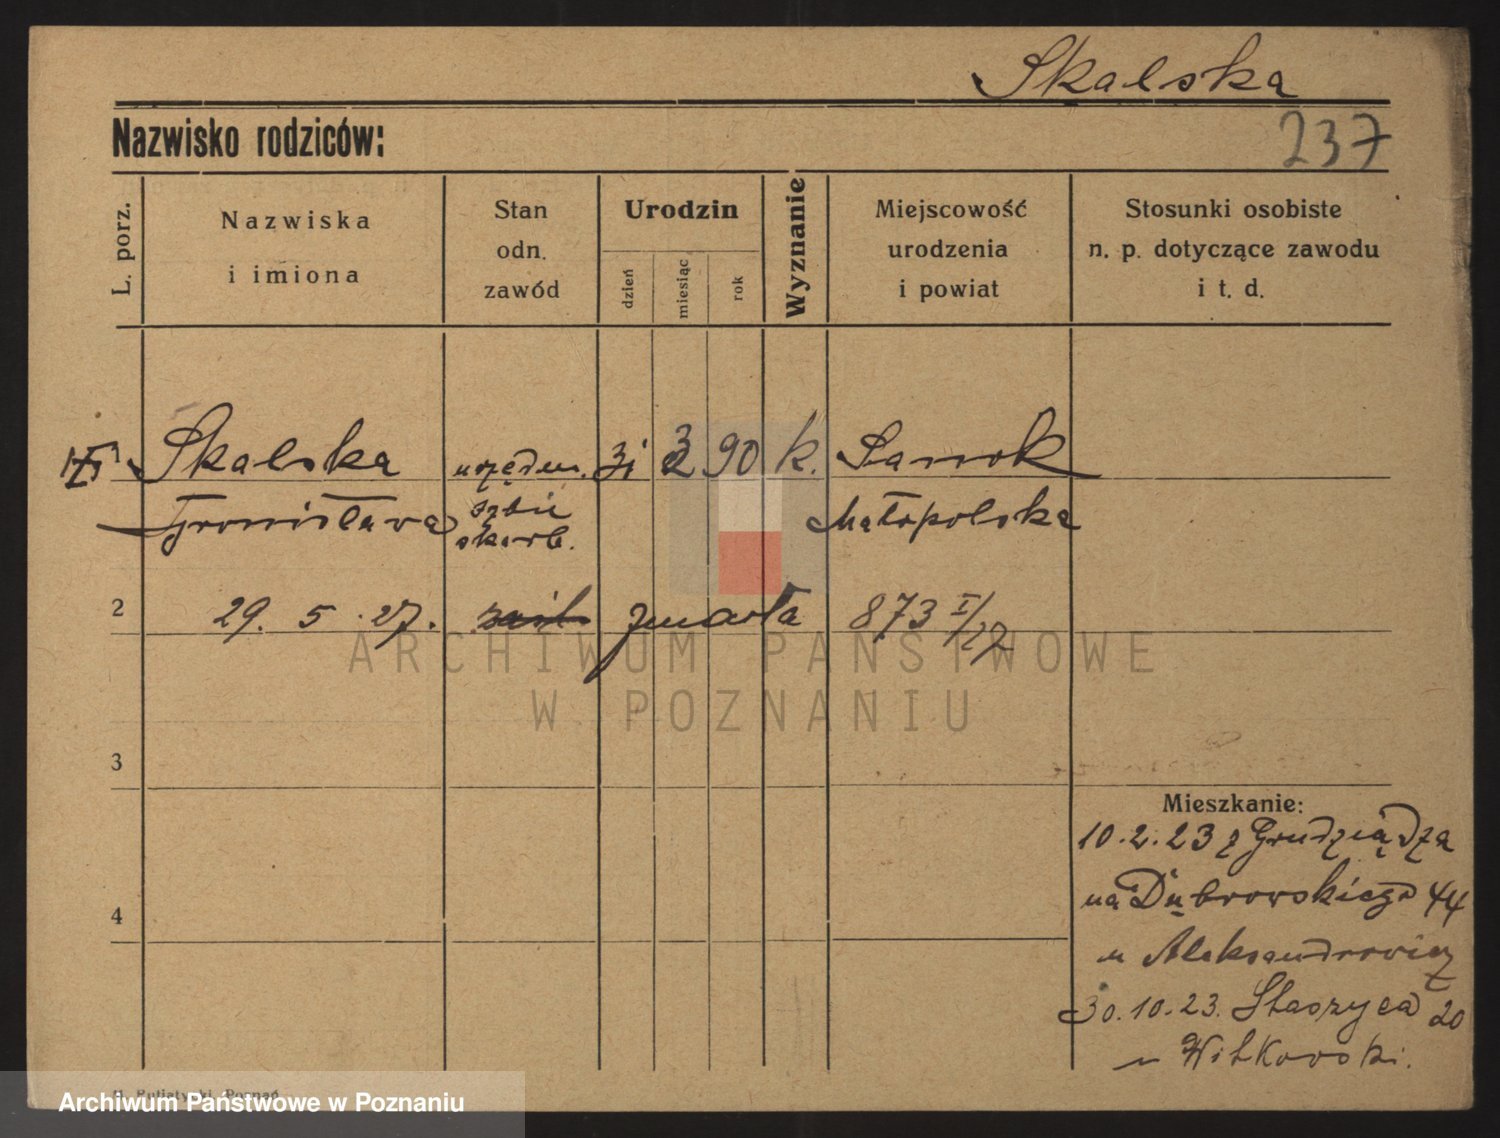 Skalska
Nazwisko rodziców:
237
L. porz.
Nazwiska
i imiona
Stan
odn.
zawód
Urodzin
dzień
miesiąc
rok
Wyznanie
Miejscowość
urodzenia
i powiat
Stosunki osobiste
n. p. dotyczące zawodu
i t. d.
Skalska urzędn. 31 3 90 k. Sanok
Bronisława izbie Małopolska
skarb.
2 29. 5. 27. zmarła 873 I/27
ARCHIWUM PAŃSTWOWE
W POZNANIU
3
Mieszkanie:
10.2.23 z Grudziądza
na Dąbrowskiego 44
4
u Aleksandrowicz
30.10.23. Staszyca 20
u Witkowski.
Poznań
Archiwum Państwowe w Poznaniu